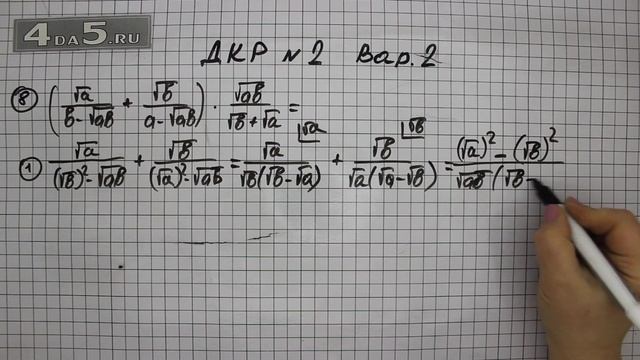 4DA5.RU
ДКР №2 Вар. 2
⑧ (√a/(b-√ab) + √b/(a-√ab)) · √ab/(√b+√a) =
① √a/((√b)²-√ab) + √b/((√a)²-√ab) = √a/(√b(√b-√a)) ⌊√a + √b/(√a(√a-√b)) ⌊√b = ((√a)²-(√b)²)/(√ab(√b-